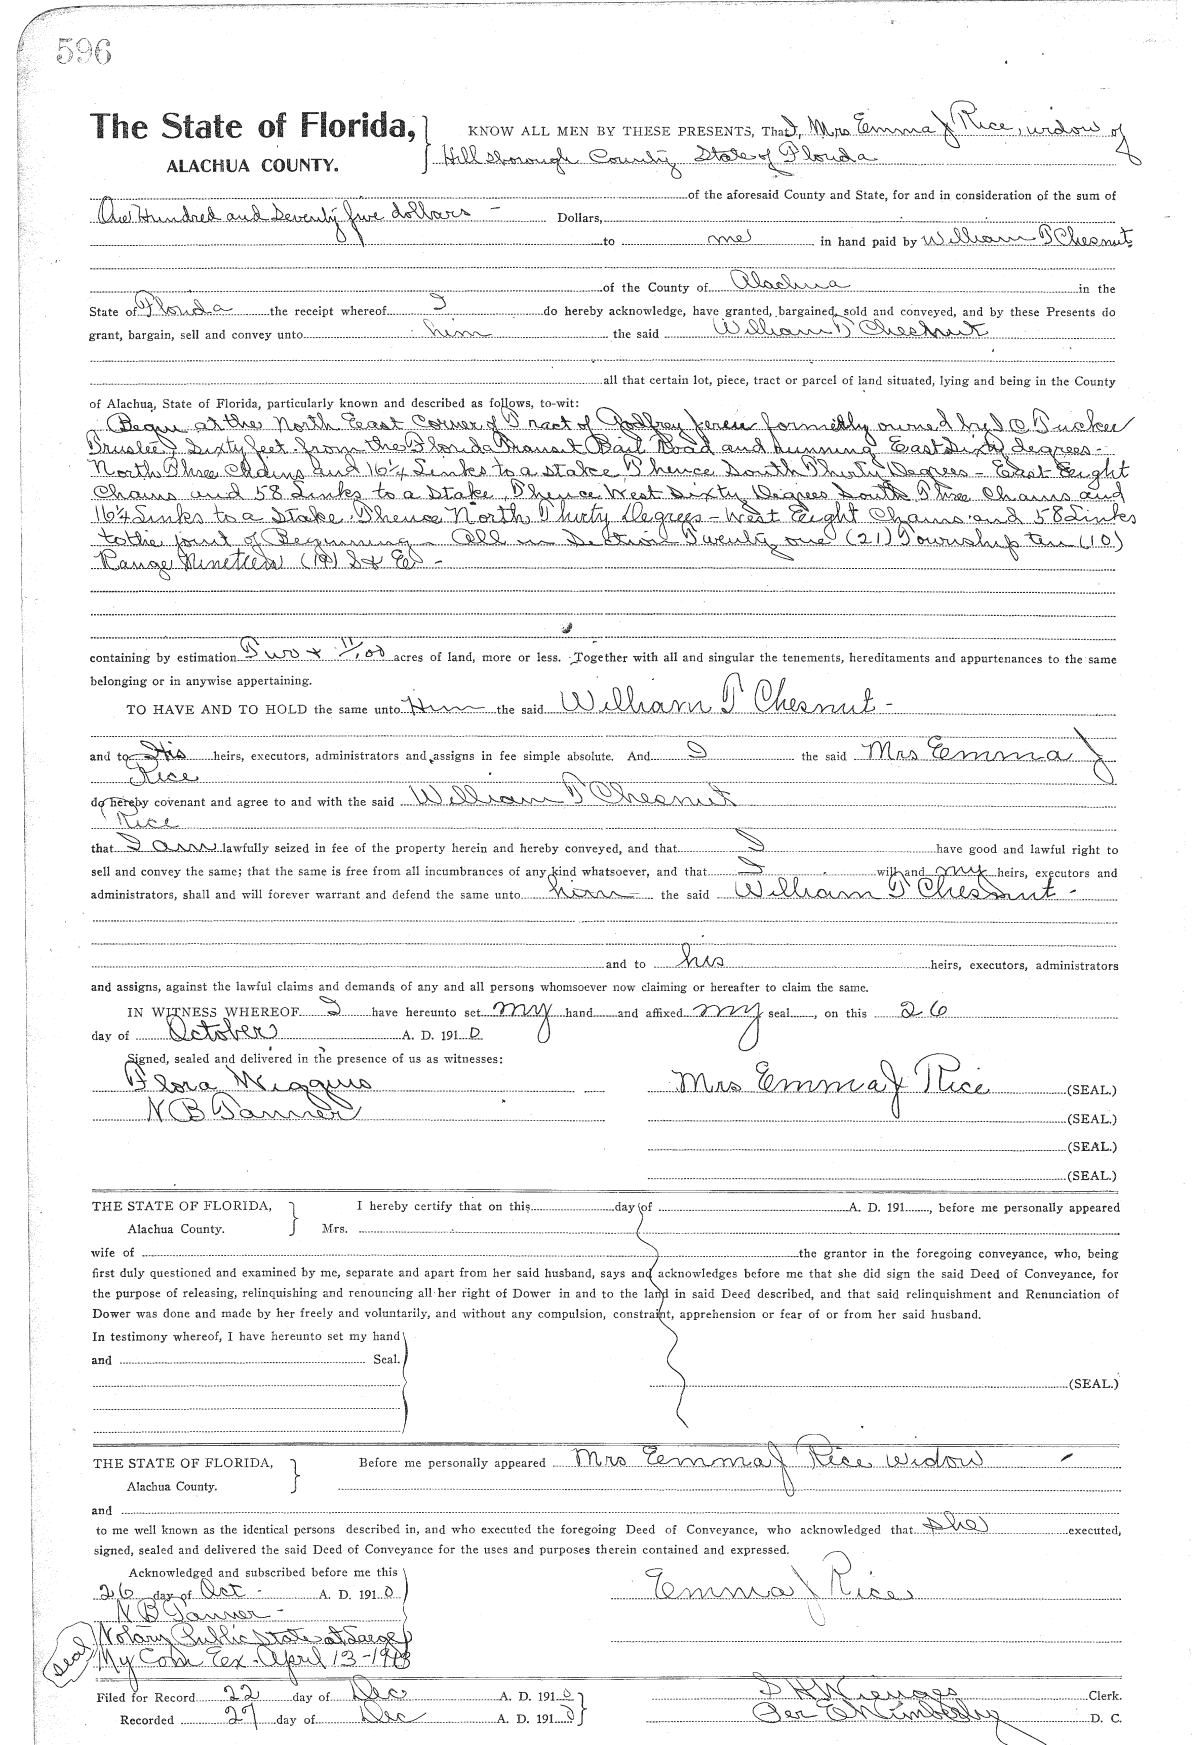 596
The State of Florida, KNOW ALL MEN BY THESE PRESENTS, That I, Mrs Emma J Rice, widow of
ALACHUA COUNTY. Hillsborough County State of Florida
of the aforesaid County and State, for and in consideration of the sum of
One Hundred and Seventy five dollars - Dollars,
to me in hand paid by William T Chesnut
of the County of Alachua in the
State of Florida the receipt whereof I do hereby acknowledge, have granted, bargained, sold and conveyed, and by these Presents do
grant, bargain, sell and convey unto him the said William T Chesnut
all that certain lot, piece, tract or parcel of land situated, lying and being in the County
of Alachua, State of Florida, particularly known and described as follows, to-wit:
Begun at the North East Corner of Tract of Godfrey formerly owned by Tucker
Trustee Sixty feet from the Florida Transit Rail Road and running East Sixty degrees -
North Three Chains and 16¼ Links to a stake Thence South Thirty Degrees - East Eight
Chains and 58 Links to a Stake, Thence West Sixty Degrees South Three Chains and
16¼ Links to a Stake Thence North Thirty Degrees - West Eight Chains and 58 Links
to the point of Beginning - All in Section Twenty one (21) Township ten (10)
Range Nineteen (19) S & E -
containing by estimation Two & 11/100 acres of land, more or less. Together with all and singular the tenements, hereditaments and appurtenances to the same
belonging or in anywise appertaining.
TO HAVE AND TO HOLD the same unto Him the said William T Chesnut -
and to His heirs, executors, administrators and assigns in fee simple absolute. And I the said Mrs Emma J
Rice
do hereby covenant and agree to and with the said William T Chesnut
Rice
that I am lawfully seized in fee of the property herein and hereby conveyed, and that I have good and lawful right to
sell and convey the same; that the same is free from all incumbrances of any kind whatsoever, and that I will and my heirs, executors and
administrators, shall and will forever warrant and defend the same unto him the said William T Chesnut -
and to his heirs, executors, administrators
and assigns, against the lawful claims and demands of any and all persons whomsoever now claiming or hereafter to claim the same.
IN WITNESS WHEREOF I have hereunto set my hand and affixed my seal, on this 26
day of October A. D. 1910
Signed, sealed and delivered in the presence of us as witnesses:
Flora Wiggins Mrs Emma J Rice (SEAL.)
N B Tanner (SEAL.)
(SEAL.)
(SEAL.)
THE STATE OF FLORIDA, I hereby certify that on this day of A. D. 191 , before me personally appeared
Alachua County. Mrs.
wife of the grantor in the foregoing conveyance, who, being
first duly questioned and examined by me, separate and apart from her said husband, says and acknowledges before me that she did sign the said Deed of Conveyance, for
the purpose of releasing, relinquishing and renouncing all her right of Dower in and to the land in said Deed described, and that said relinquishment and Renunciation of
Dower was done and made by her freely and voluntarily, and without any compulsion, constraint, apprehension or fear of or from her said husband.
In testimony whereof, I have hereunto set my hand
and Seal.
(SEAL.)
THE STATE OF FLORIDA, Before me personally appeared Mrs Emma J Rice widow
Alachua County.
and
to me well known as the identical persons described in, and who executed the foregoing Deed of Conveyance, who acknowledged that she executed,
signed, sealed and delivered the said Deed of Conveyance for the uses and purposes therein contained and expressed.
Acknowledged and subscribed before me this
26 day of Oct - A. D. 1910 Emma J Rice
N B Tanner -
Notary Public State at Large
seal My Com Ex - April 13 - 1913
Filed for Record 22 day of Dec A. D. 1910 S H Wienges Clerk.
Recorded 27 day of Dec A. D. 1910 Per E Wimberly D. C.